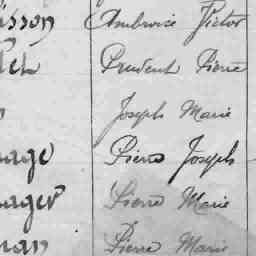 isson Ambroise Victor
Prudent Pierre
Joseph Marie
age Pierre Joseph
ager Pierre Marie
nan Pierre Marie